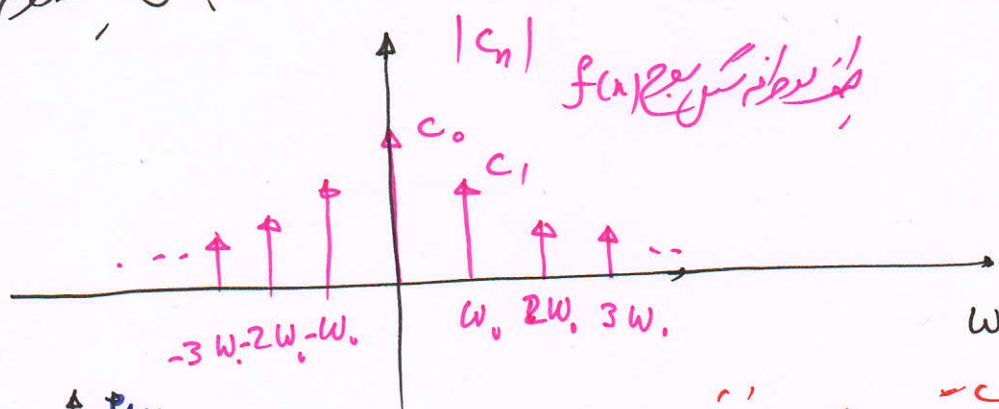 |Cₙ|
طیف دو طرفه شکل موج f(x)
C₀
C₁
... ...
-3ω₀ -2ω₀ -ω₀ ω₀ 2ω₀ 3ω₀
ω